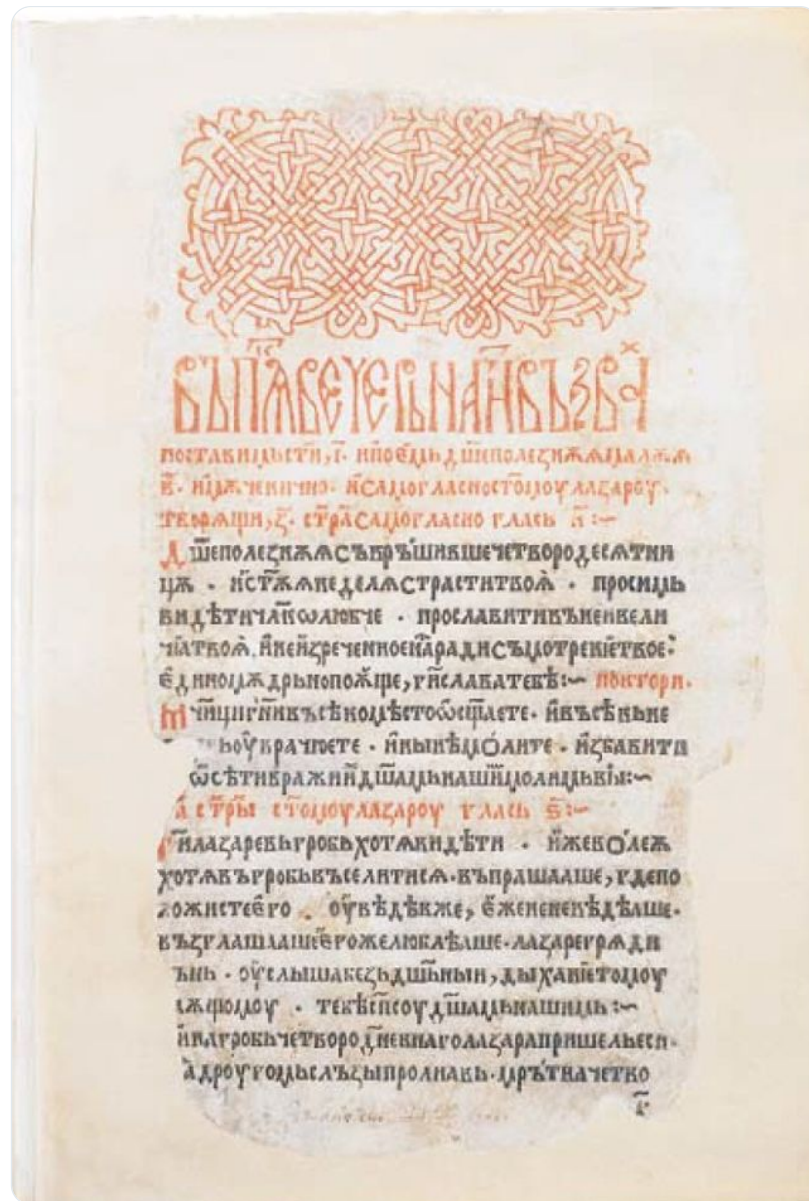 въ пѧ҃ веⷱ҇ерь на г҃и възваⷯ
поставимь сти҃, і҃· и҆ поемь д҃шеполезнѫѧ малѫѧ
в҃· и҆ мѫченично· и҆ самогласно ст҃омоу лазароу·
творѧщи, з҃· стр҃а самогласно глась и҃ :~
Д҃шеполезнѫѧ съвръ́шивше четвородесѧтни
цѫ · и҆ ст҃ѫѧ недѣлѧ страсти твоѧ҆ · просимь
видѣти чл҃колюбче · прославити въ неи вели
чїа твоѧ҆, и҆ неизреченное на́ ради съмотренїе твое҆·
є҆диномѫдрьно поѫ́ще, г҃и слава тебѣ :~ повтори·
М҃чн҃ци гн҃и въсѣко мѣсто ѡ҆сщ҃аете· и҆ въсѣкь не
оу҆врачюете · и҆ нын҃ѣ мо́лите · и҆збавити
ѿ сѣти вражїи д҃шамь нашїи молимь вы́ :~
стр҃ы ст҃омоу лазароу глась ѕ҃ :~
Г҃и лазаревь гробь хотѧ видѣти · и҆же волеѫ
хотѧ въ гробь въселитисѧ· въпрашааше, где по
ложисте є҆го · оу҆вѣдѣв же, є҆же не невѣдѣаше·
възглашааше є҆гоже люблѣаше· лазаре грѧди
вънь · оу҆слыша бездш҃ныи, дыханїе томоу
· тебѣ сп҃соу д҃шамь нашимь :~
и҆ на гробь четвородн҃евнаго лазара пришель еси·
и҆ а дроугомь слъзы пролиавь· мрь́тва четво